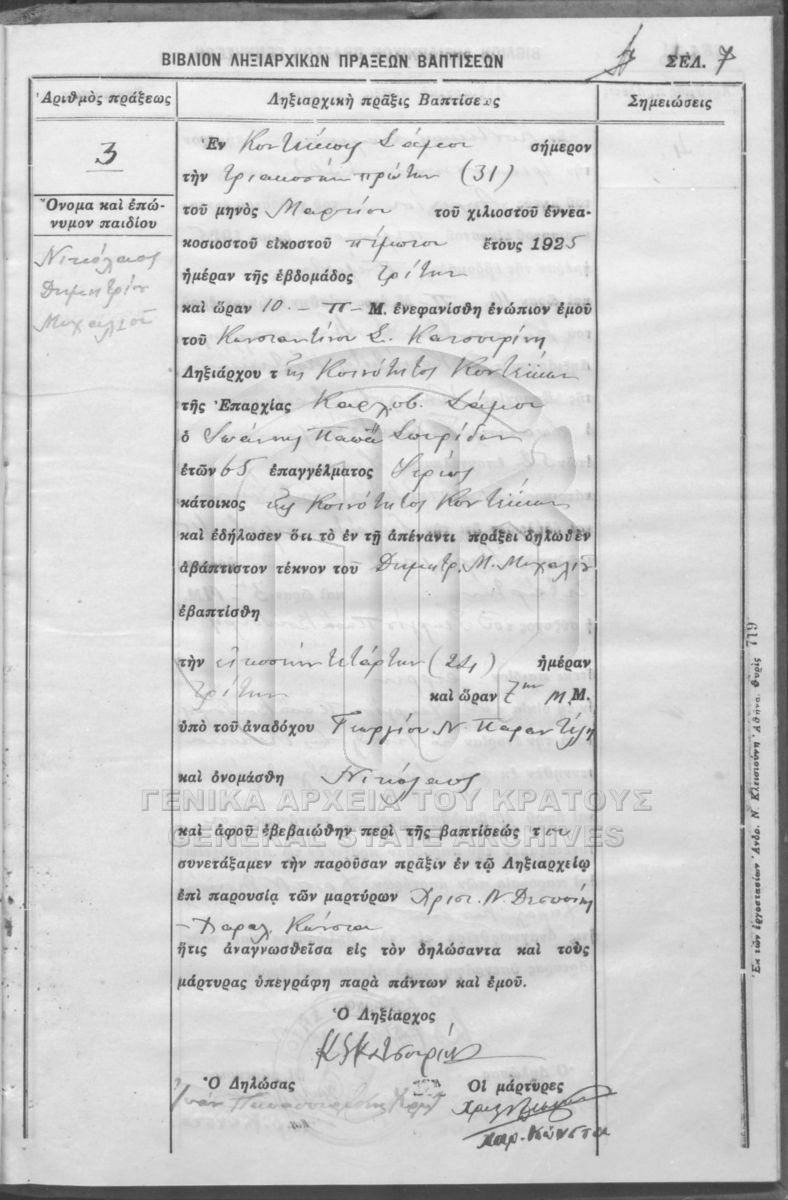 ΒΙΒΛΙΟΝ ΛΗΞΙΑΡΧΙΚΩΝ ΠΡΑΞΕΩΝ ΒΑΠΤΙΣΕΩΝ
ΣΕΛ. 7
Ἀριθμὸς πράξεως
Ληξιαρχικὴ πρᾶξις Βαπτίσεως
Σημειώσεις
3
Ὄνομα καὶ ἐπώ-
νυμον παιδίου
Νικόλαος
Δημητρίου
Μιχαλιοῦ
Ἐν Κοντεΐκοις Σάμου σήμερον
τὴν τριακοστὴν πρώτην (31)
τοῦ μηνὸς Μαρτίου τοῦ χιλιοστοῦ ἐννεα-
κοσιοστοῦ εἰκοστοῦ πέμπτου ἔτους 1925
ἡμέραν τῆς ἑβδομάδος Τρίτην
καὶ ὥραν 10 - π - Μ. ἐνεφανίσθη ἐνώπιον ἐμοῦ
τοῦ Κωνσταντίνου Σ. Κατσουρίνη
Ληξιάρχου τῆς Κοινότητος Κοντεΐκων
τῆς Ἐπαρχίας Καρλοβ. Σάμου
ὁ Ἰωάννης Παπᾶ Σπυρίδων
ἐτῶν 65 ἐπαγγέλματος Ἱερεὺς
κάτοικος τῆς Κοινότητος Κοντεΐκων
καὶ ἐδήλωσεν ὅτι τὸ ἐν τῇ ἀπέναντι πράξει δηλωθὲν
ἀβάπτιστον τέκνον τοῦ Δημητρ. Μ. Μιχαλιοῦ
ἐβαπτίσθη
τὴν εἰκοστὴν τετάρτην (24) ἡμέραν
Τρίτην καὶ ὥραν 7ην Μ.Μ.
ὑπὸ τοῦ ἀναδόχου Γεωργίου Ν.
καὶ ὀνομάσθη Νικόλαος
ΓΕΝΙΚΑ ΑΡΧΕΙΑ ΤΟΥ ΚΡΑΤΟΥΣ
GENERAL STATE ARCHIVES
καὶ ἀφοῦ ἐβεβαιώθην περὶ τῆς βαπτίσεώς του
συνετάξαμεν τὴν παροῦσαν πρᾶξιν ἐν τῷ Ληξιαρχείῳ
ἐπὶ παρουσίᾳ τῶν μαρτύρων Χρισ. Ν.
- Χαραλ. Κώνστα
ἥτις ἀναγνωσθεῖσα εἰς τὸν δηλώσαντα καὶ τοὺς
μάρτυρας ὑπεγράφη παρὰ πάντων καὶ ἐμοῦ.
Ὁ Ληξίαρχος
Ὁ Δηλώσας
Οἱ μάρτυρες
Χαρ. Κώνστα
Ἐκ τῶν ἐργοστασίων Ἀνδρ. Ν. Κλεισιούνη Ἀθῆναι. Θυρὶς 719